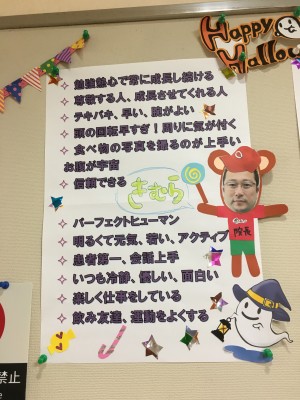 Happy
Hallow
勉強熱心で常に成長し続ける
尊敬する人、成長させてくれる人
テキパキ、早い、腕がよい
頭の回転早すぎ！周りに気が付く
食べ物の写真を撮るのが上手い
お腹が宇宙
信頼できる
きむら
パーフェクトヒューマン
明るくて元気、若い、アクティブ
患者第一、会話上手
いつも冷静、優しい、面白い
楽しく仕事をしている
飲み友達、運動をよくする
院長
禁止